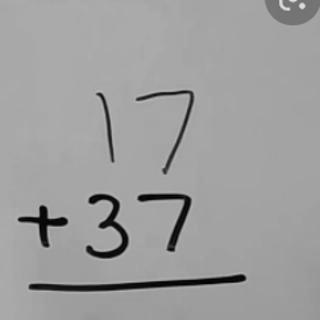 17
+37